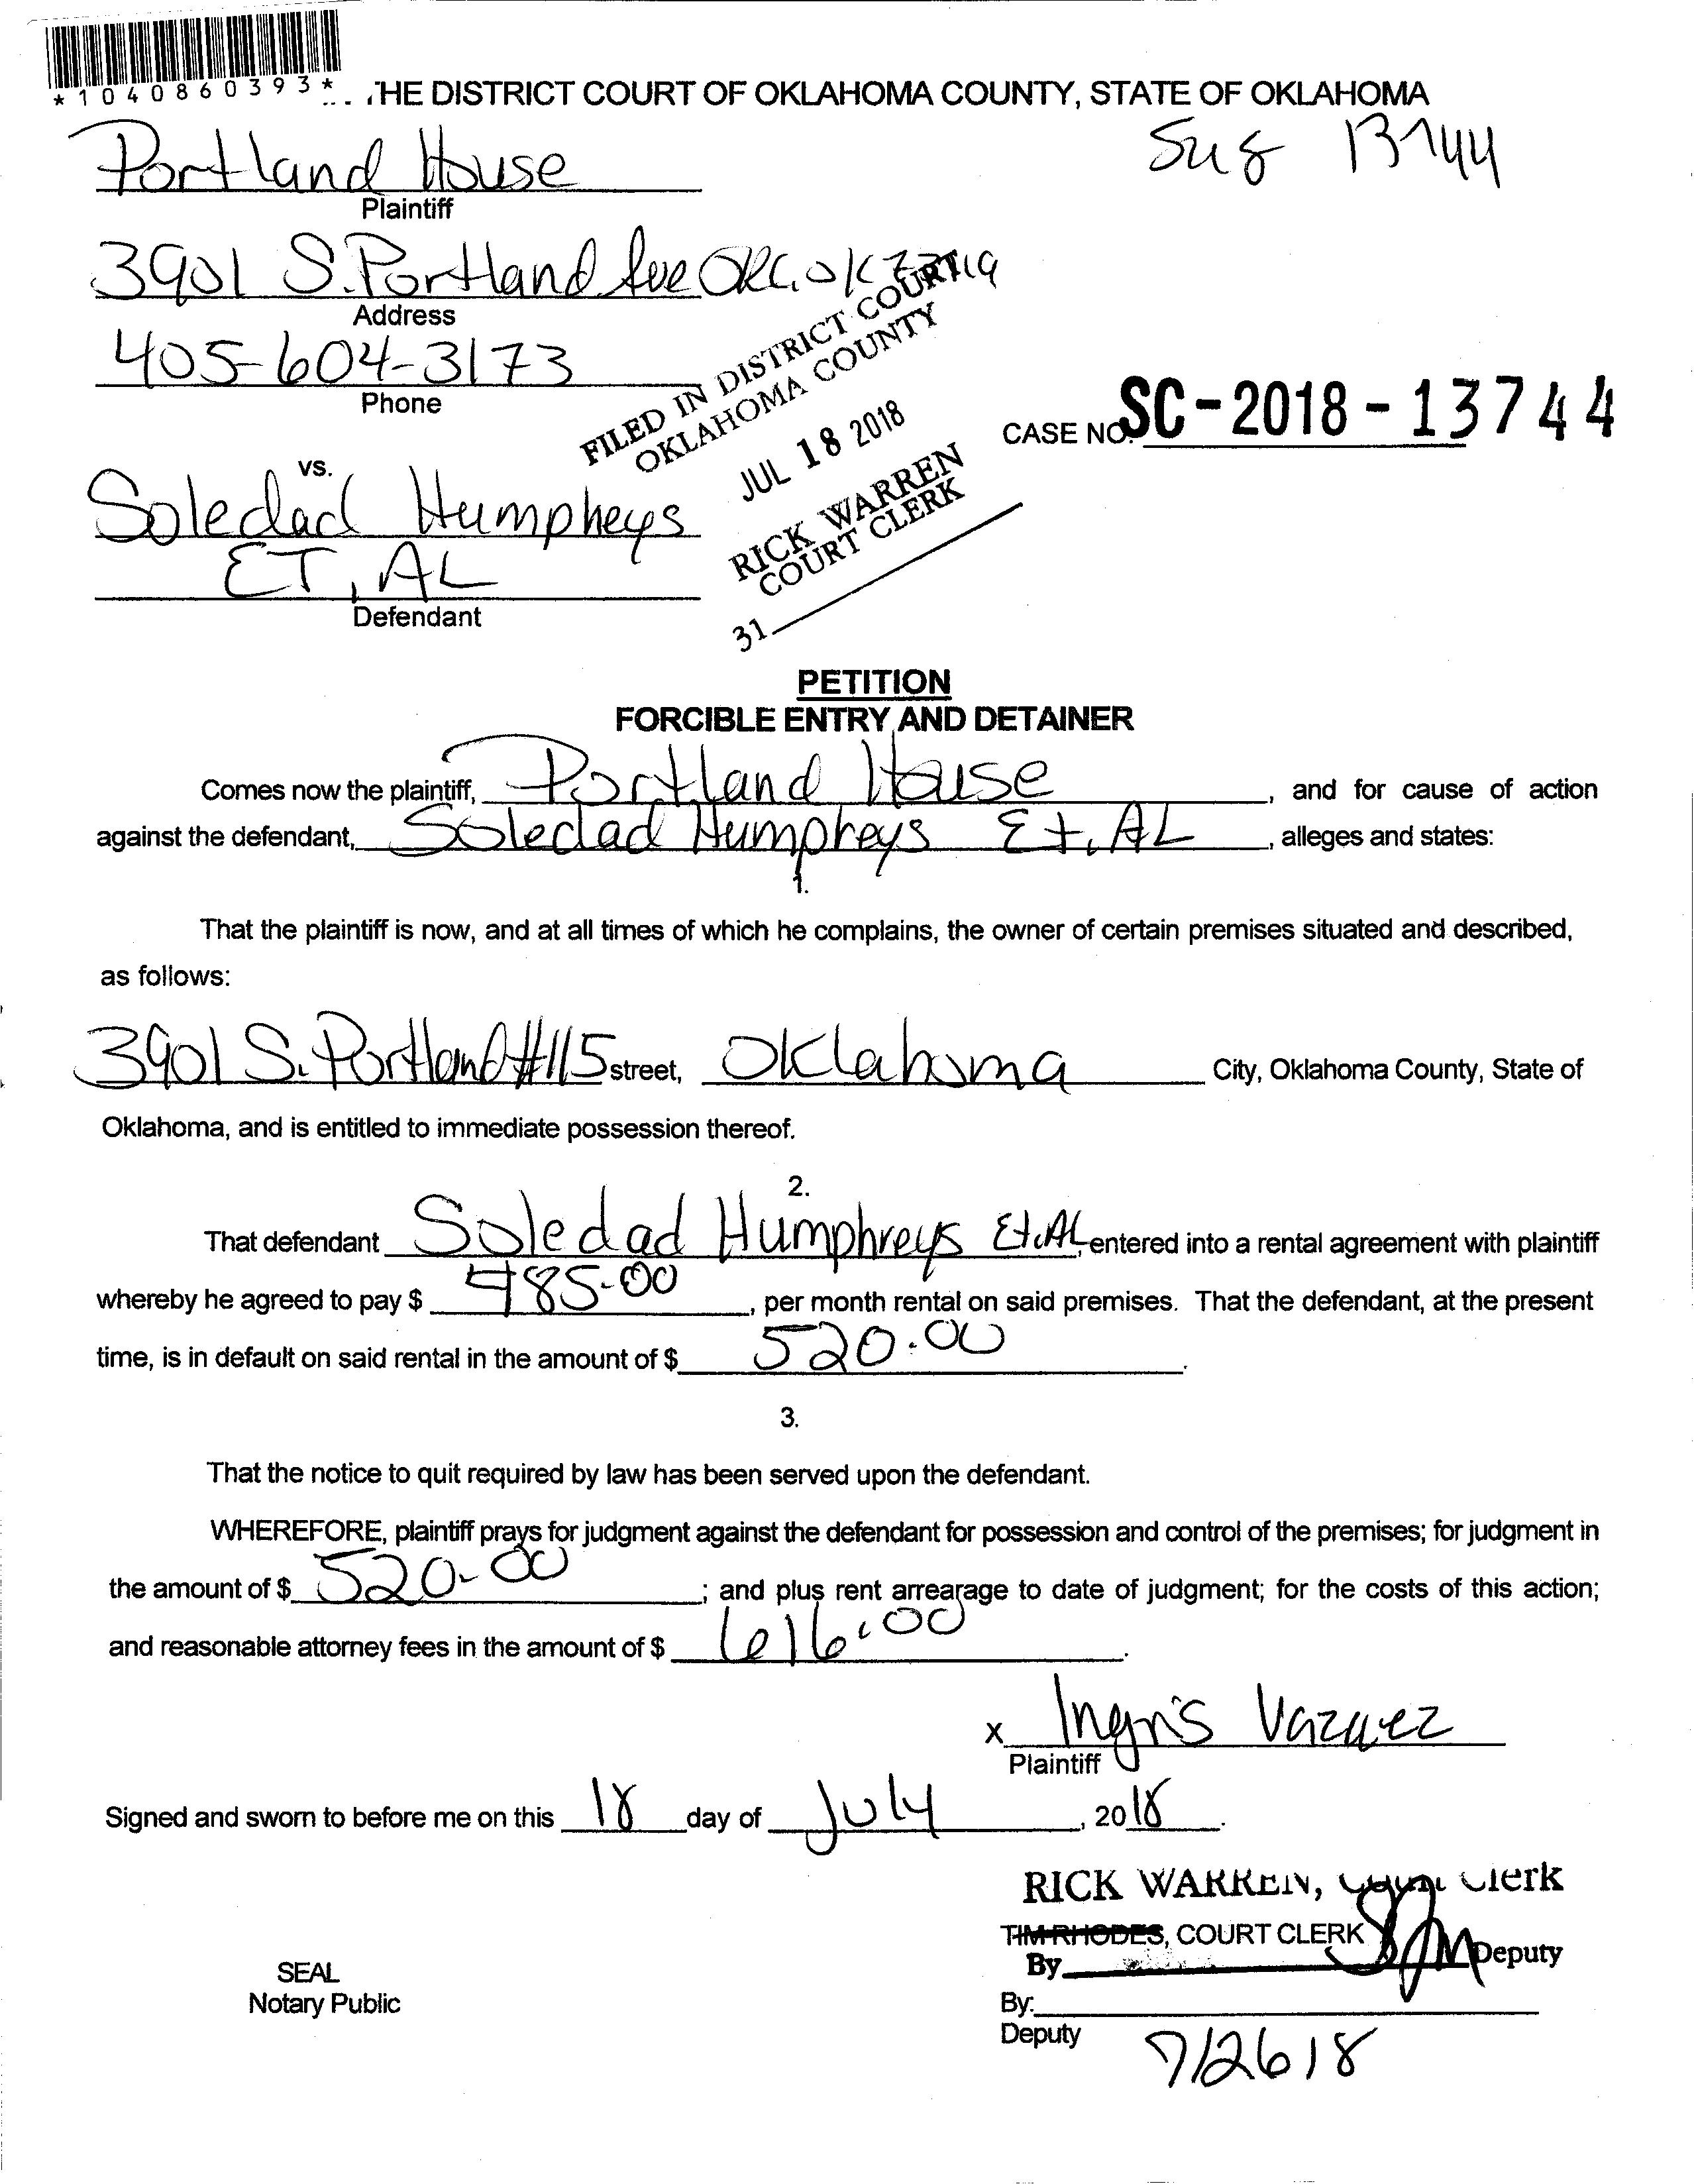 *1040860393*
THE DISTRICT COURT OF OKLAHOMA COUNTY, STATE OF OKLAHOMA
Portland House
13744
Plaintiff
3901 S. Portland Ave OKC, OK 73119
Address
405-604-3173
Phone
FILED IN DISTRICT COURT
OKLAHOMA COUNTY
JUL 18 2018
RICK WARREN
COURT CLERK
31
CASE NO. SC-2018-13744
vs.
Soledad Humpheys
ET, AL
Defendant
PETITION
FORCIBLE ENTRY AND DETAINER
Comes now the plaintiff, Portland House, and for cause of action
against the defendant, Soledad Humpheys Et, AL, alleges and states:
1.
That the plaintiff is now, and at all times of which he complains, the owner of certain premises situated and described,
as follows:
3901 S. Portland #115 street, Oklahoma City, Oklahoma County, State of
Oklahoma, and is entitled to immediate possession thereof.
2.
That defendant Soledad Humphreys Et, AL, entered into a rental agreement with plaintiff
whereby he agreed to pay $ 485.00, per month rental on said premises. That the defendant, at the present
time, is in default on said rental in the amount of $ 520.00.
3.
That the notice to quit required by law has been served upon the defendant.
WHEREFORE, plaintiff prays for judgment against the defendant for possession and control of the premises; for judgment in
the amount of $ 520.00; and plus rent arrearage to date of judgment; for the costs of this action;
and reasonable attorney fees in the amount of $ 616.00.
x Ingris Vazquez
Plaintiff
Signed and sworn to before me on this 18 day of July, 2018.
RICK WARREN, Court Clerk
TIM RHODES, COURT CLERK
By Deputy
SEAL
Notary Public
By:
Deputy
7/26/18